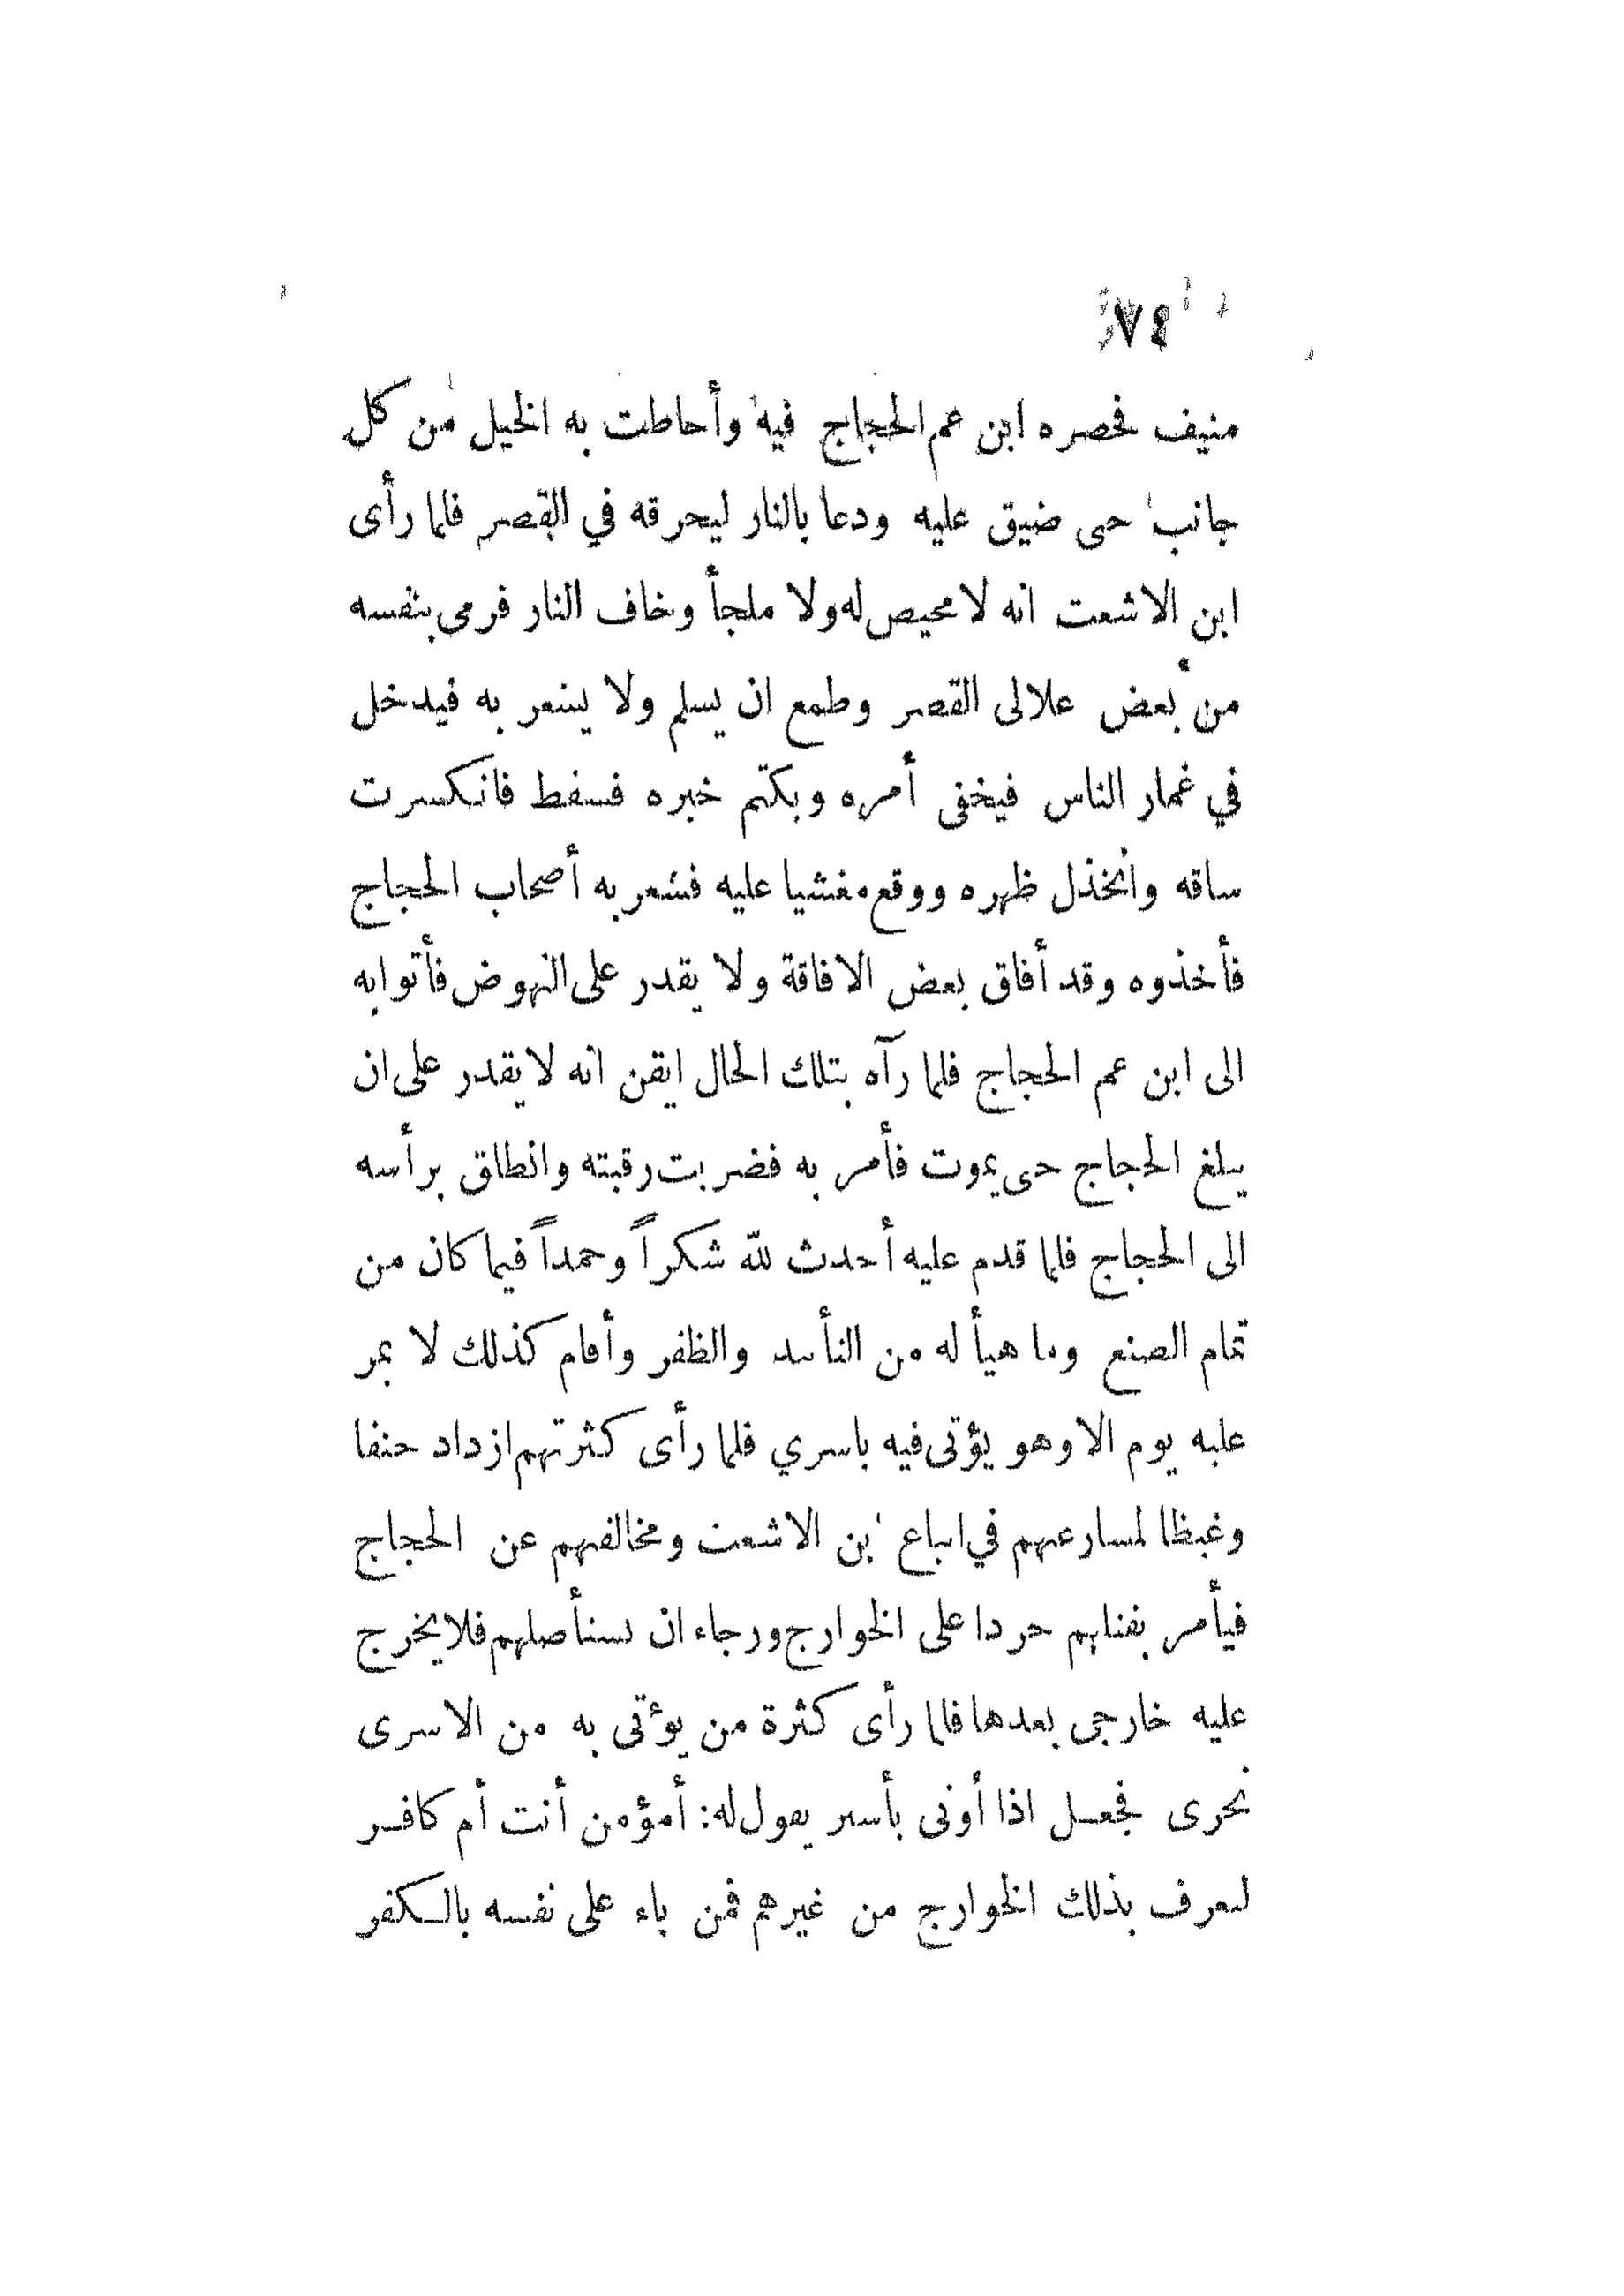 ٧٤
منيف فحصره ابن عم الحجاج فيه وأحاطت به الخيل من كل
جانب حتى ضيق عليه ودعا بالنار ليحرقه في القصر فلما رأى
ابن الاشعت انه لا محيص له ولا ملجأ وخاف النار فرمى بنفسه
من بعض علالى القصر وطمع ان يسلم ولا يشعر به فيدخل
في غمار الناس فيخفى أمره ويكتم خبره فسقط فانكسرت
ساقه وانخذل ظهره ووقع مغشيا عليه فشعر به أصحاب الحجاج
فأخذوه وقد أفاق بعض الافاقة ولا يقدر على النهوض فأتوا به
الى ابن عم الحجاج فلما رآه بتلك الحال ايقن انه لا يقدر على ان
يبلغ الحجاج حتى يموت فأمر به فضربت رقبته وانطلق برأسه
الى الحجاج فلما قدم عليه أحدث لله شكراً وحمداً فيما كان من
تمام الصنع وما هيأ له من التأييد والظفر وأقام كذلك لا يمر
عليه يوم الا وهو يؤتى فيه باسري فلما رأى كثرتهم ازداد حنقا
وغيظا لمسارعتهم في اتباع ابن الاشعت ومخالفتهم عن الحجاج
فيأمر بقتلهم حردا على الخوارج ورجاء ان يستأصلهم فلا يخرج
عليه خارجى بعدها فلما رأى كثرة من يؤتى به من الاسرى
تحرى فجعل اذا أوتى بأسير يقول له: أمؤمن أنت أم كافر
ليعرف بذلك الخوارج من غيرهم فمن باء على نفسه بالكفر